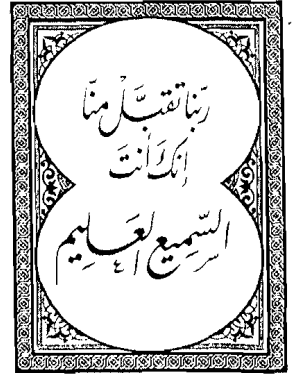 ربّنا تقبّل منّا
إنك أنت
السّميع العليم